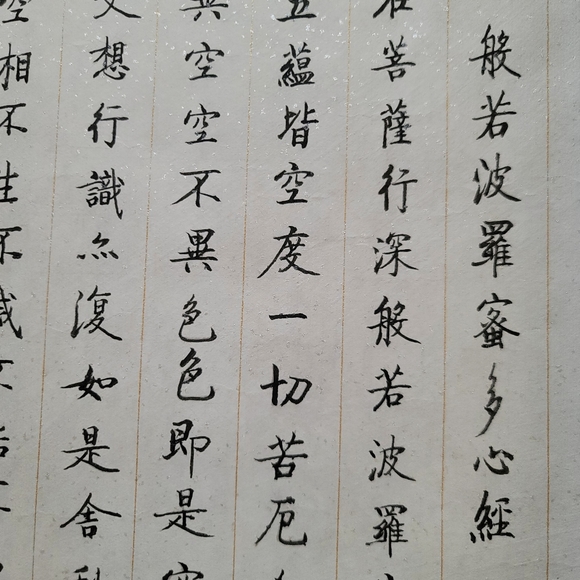 般若波羅蜜多心經
在菩薩行深般若波羅
五蘊皆空度一切苦厄
異空空不異色色即是空
想行識亦復如是舍
相不生不滅